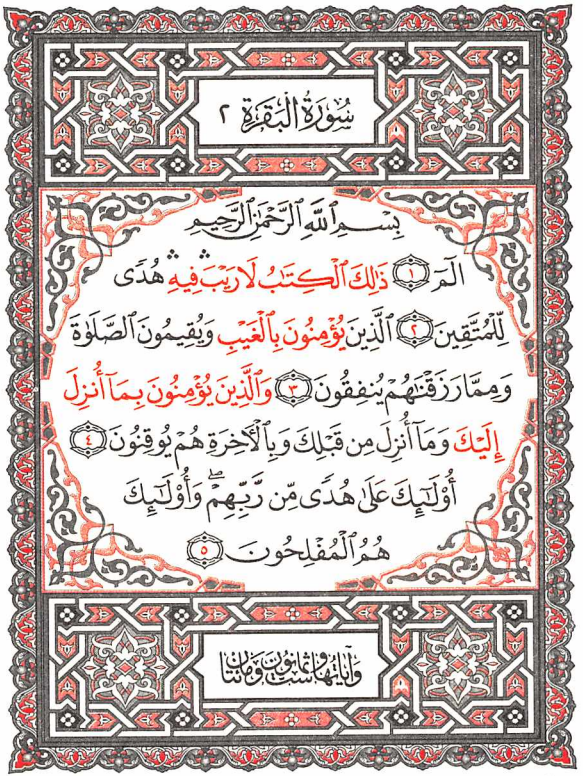 سُورَةُ الْبَقَرَةِ ٢
بِسْمِ ٱللَّهِ ٱلرَّحْمَٰنِ ٱلرَّحِيمِ
الٓمٓ ١ ذَٰلِكَ ٱلْكِتَٰبُ لَا رَيْبَ ۛ فِيهِ ۛ هُدًى
لِّلْمُتَّقِينَ ٢ ٱلَّذِينَ يُؤْمِنُونَ بِٱلْغَيْبِ وَيُقِيمُونَ ٱلصَّلَوٰةَ
وَمِمَّا رَزَقْنَٰهُمْ يُنفِقُونَ ٣ وَٱلَّذِينَ يُؤْمِنُونَ بِمَآ أُنزِلَ
إِلَيْكَ وَمَآ أُنزِلَ مِن قَبْلِكَ وَبِٱلْأَخِرَةِ هُمْ يُوقِنُونَ ٤
أُو۟لَٰٓئِكَ عَلَىٰ هُدًى مِّن رَّبِّهِمْ ۖ وَأُو۟لَٰٓئِكَ
هُمُ ٱلْمُفْلِحُونَ ٥
وآياتها ست وثمانون ومائتان